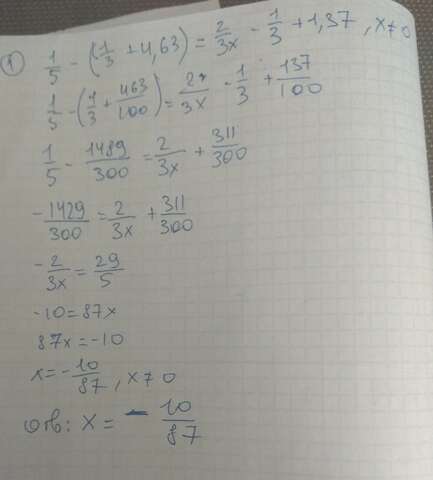 1) 1/5 - (1/3 + 4,63) = 2/3x - 1/3 + 1,37 , x≠0
1/5 - (1/3 + 463/100) = 2/3x - 1/3 + 137/100
1/5 - 1489/300 = 2/3x + 311/300
-1429/300 = 2/3x + 311/300
-2/3x = 29/5
-10 = 87x
87x = -10
x = -10/87 , x≠0
отв: x = - 10/87